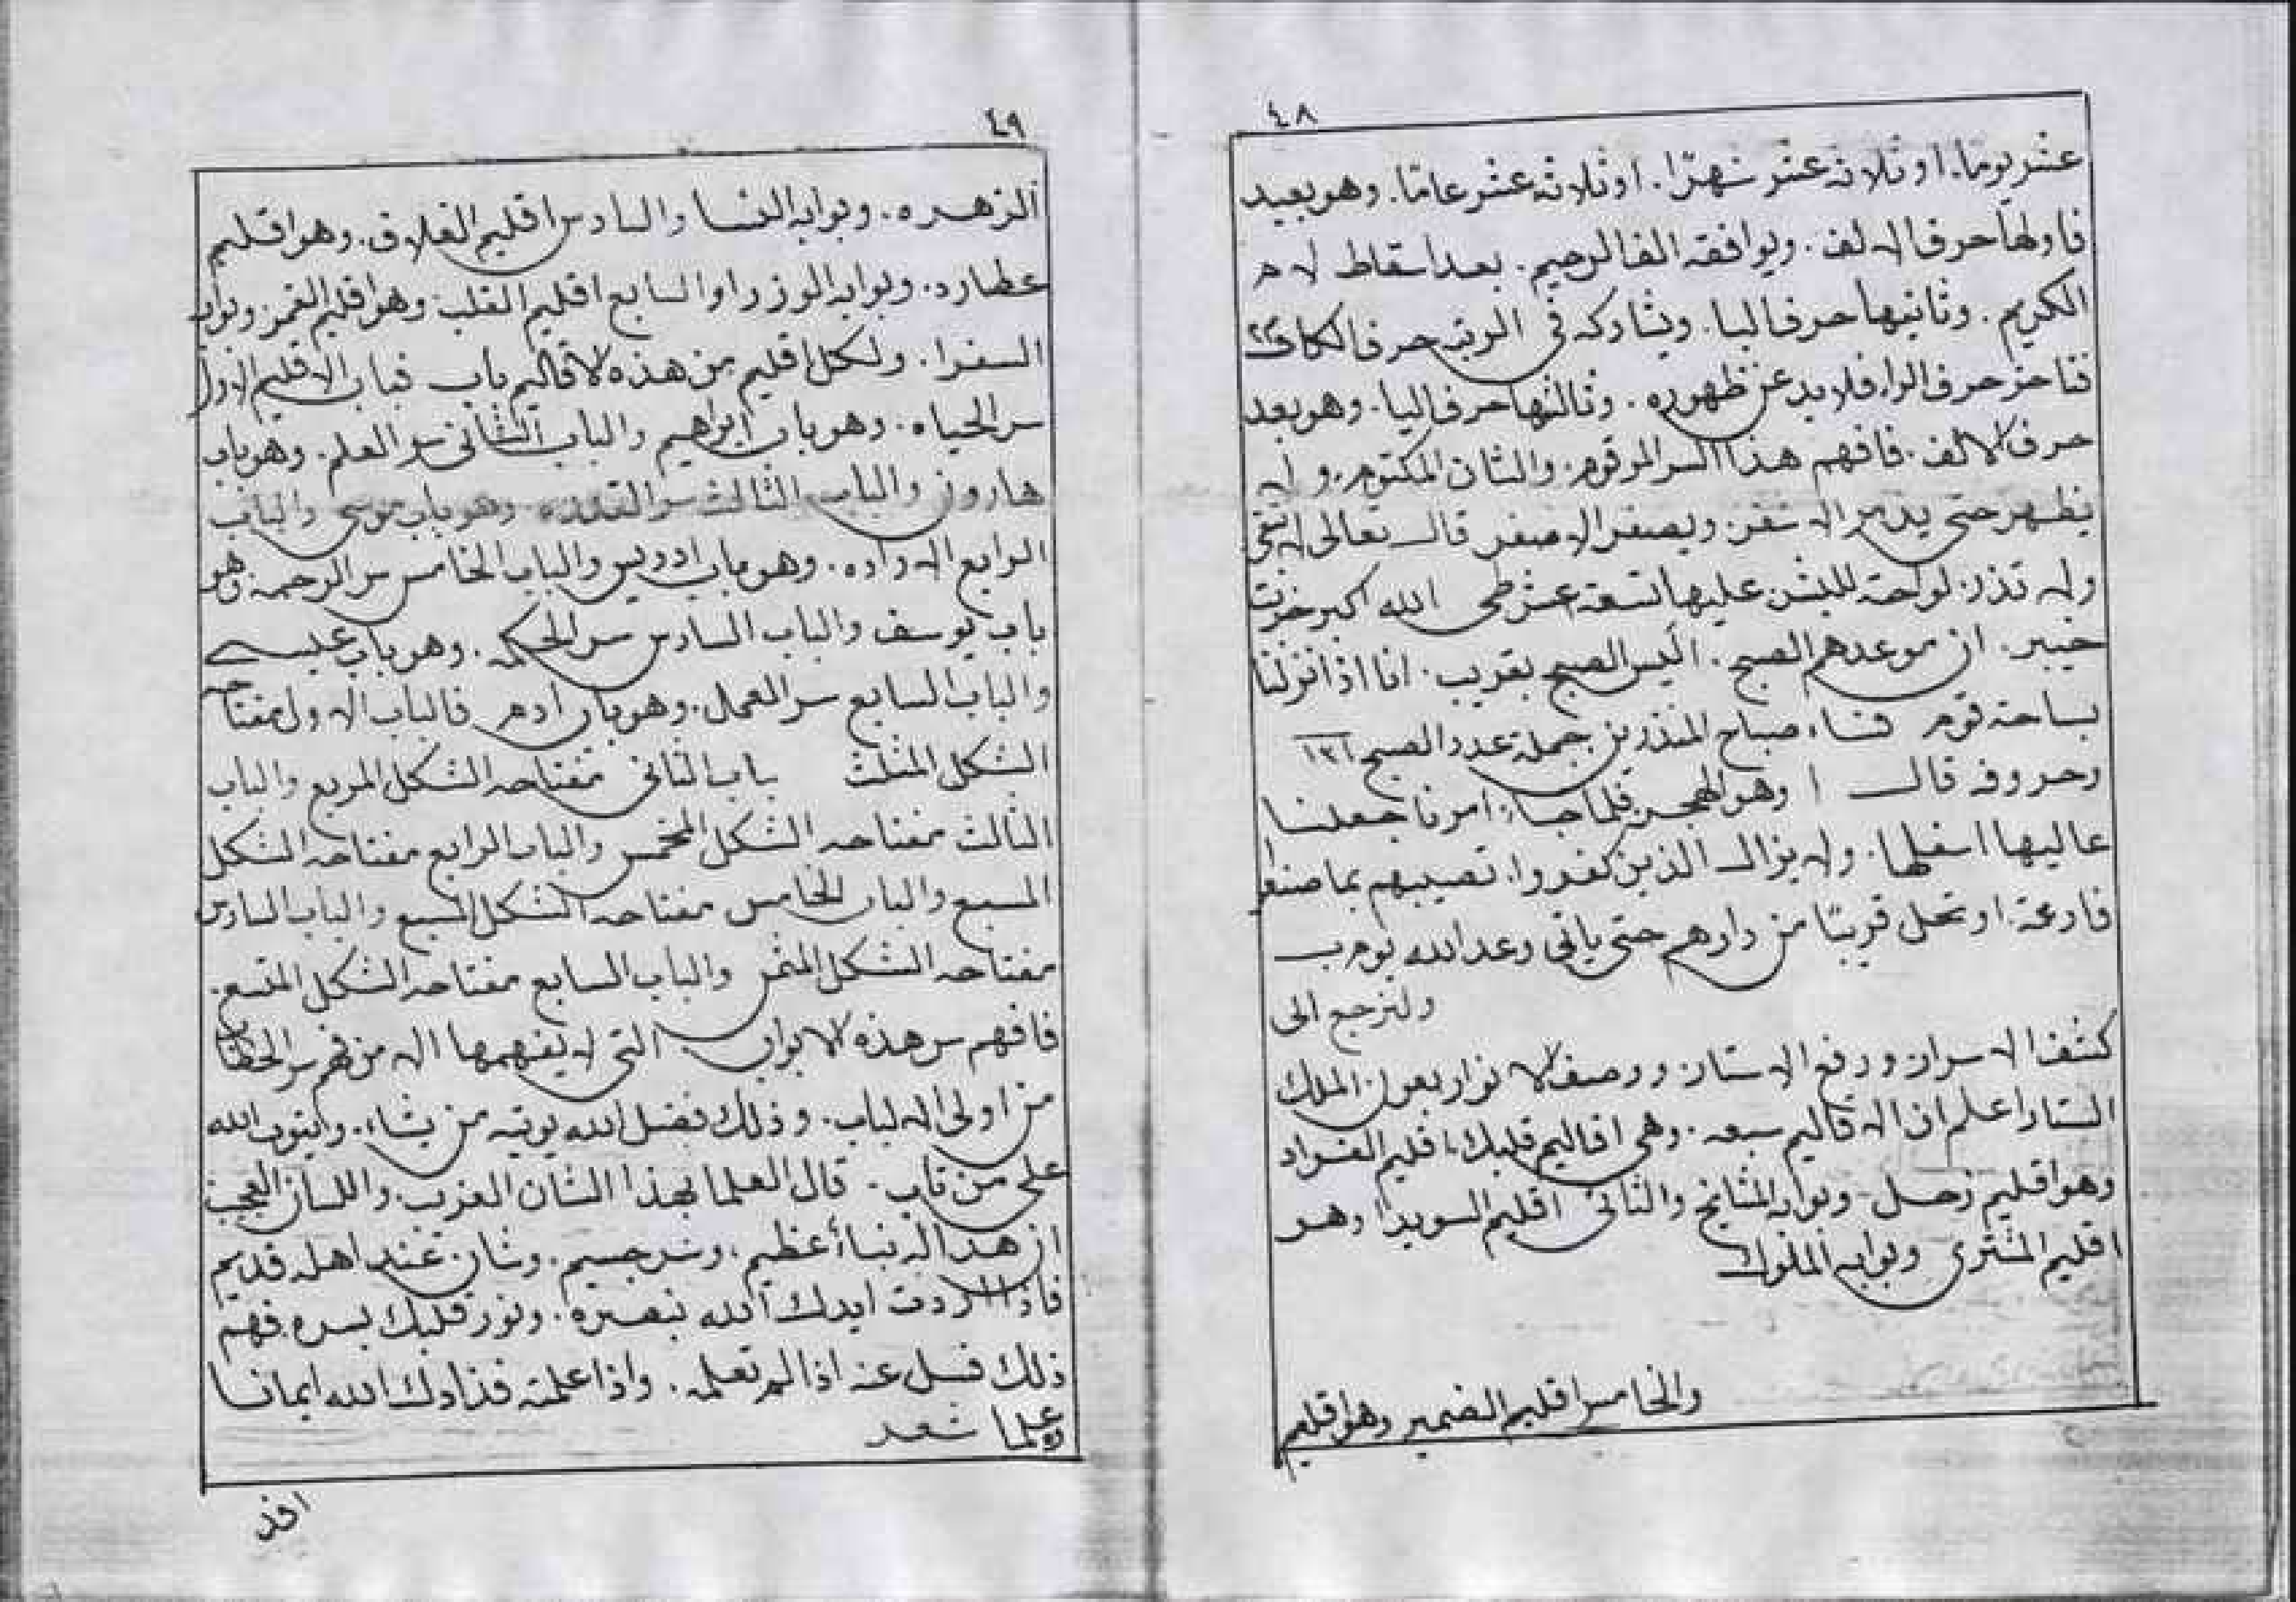 ٤٨
عشر يوما. او ثلاثة عشر شهرًا. او ثلاثة عشر عامًا. وهو بعيد
فاولها حرف الالف. ويوافقه الف الرحيم. بعد اسقاط لام
الكريم. وثانيها حرف اليا. ويشاركه في الرتبة حرف الكاف
حرف الرا. فلا بد عن ظهوره. وثالثها حرف اليا. وهو بعد
حرف الالف. فافهم هذا السر المرقوم. والشان المكتوم. ولا
يظهر حتى الاشقر. ويصفر الاصفر قال تعالى لا تبقى
ولا تذر. لواحة للبشر. عليها تسعة عشر الله اكبر خربت
خيبر. ان موعدهم الصبح. اليس الصبح بقريب. انا اذا نزلنا
بساحة قوم فساء صباح المنذرين جملة عدد الصبح ١٣١
وحروفه قال ا وهو فلما جاء امرنا جعلنا
عاليها اسفلها. ولا يزال الذين كفروا. تصيبهم بما صنعوا
قارعة. او تحل قريبًا من دارهم حتى ياتى وعد الله يوم ب
ولنرجع الى
كشف الاسرار. ورفع الاستار. ووصف الانوار بعون الملك
الستار اعلم ان الاقاليم سبعه. وهى اقاليم قلبك. اقليم الفواد
وهو اقليم زحل. وبوابه المشايخ والثانى اقليم السويدا وهو
اقليم المشترى وبوابه الملوك
والخامس اقليم الضمير وهو اقليم
٤٩
الزهره. وبوابه النسا والسادس اقليم الغلاف. وهو اقليم
عطارد. وبوابه الوزرا والسابع اقليم القلب وهو اقليم القمر. وبوابه
السفرا. ولكل اقليم من هذه الاقاليم باب فباب الاقليم الاول
سر الحياه. وهو باب ابراهيم والباب الثانى سر العلم. وهو باب
هارون والباب الثالث سر القدره. وهو باب موسى والباب
الرابع الاراده. وهو باب ادريس والباب الخامس سر الرحمة. وهو
باب يوسف والباب السادس سر الحكمه. وهو باب عيسى
والباب السابع سر العمل. وهو باب ادم فالباب الاول مفتاحه
الشكل المثلث باب الثانى مفتاحه الشكل المربع والباب
الثالث مفتاحه الشكل المخمس والباب الرابع مفتاحه الشكل
المسبع والباب الخامس مفتاحه الشكل المسبع والباب السادس
مفتاحه الشكل المثمن والباب السابع مفتاحه الشكل المتسع.
فافهم سر هذه الابواب التى لا يفهمها الا من فهم سر الخطاب
من اولى الالباب. وذلك فضل الله يوتيه من يشاء. ويتوب الله
على من تاب. قال العلما بهذا الشان الغريب. واللسان العجيب
ان هذا لنباء عظيم. وسر جسيم. وشان عند اهله قديم
فاذا اردت ايدك الله بنصره. ونور قلبك بسره. فهم
ذلك فسل عنه اذا لم تعلمه. واذا علمته فزادك الله ايمانا
وعلما تسعد